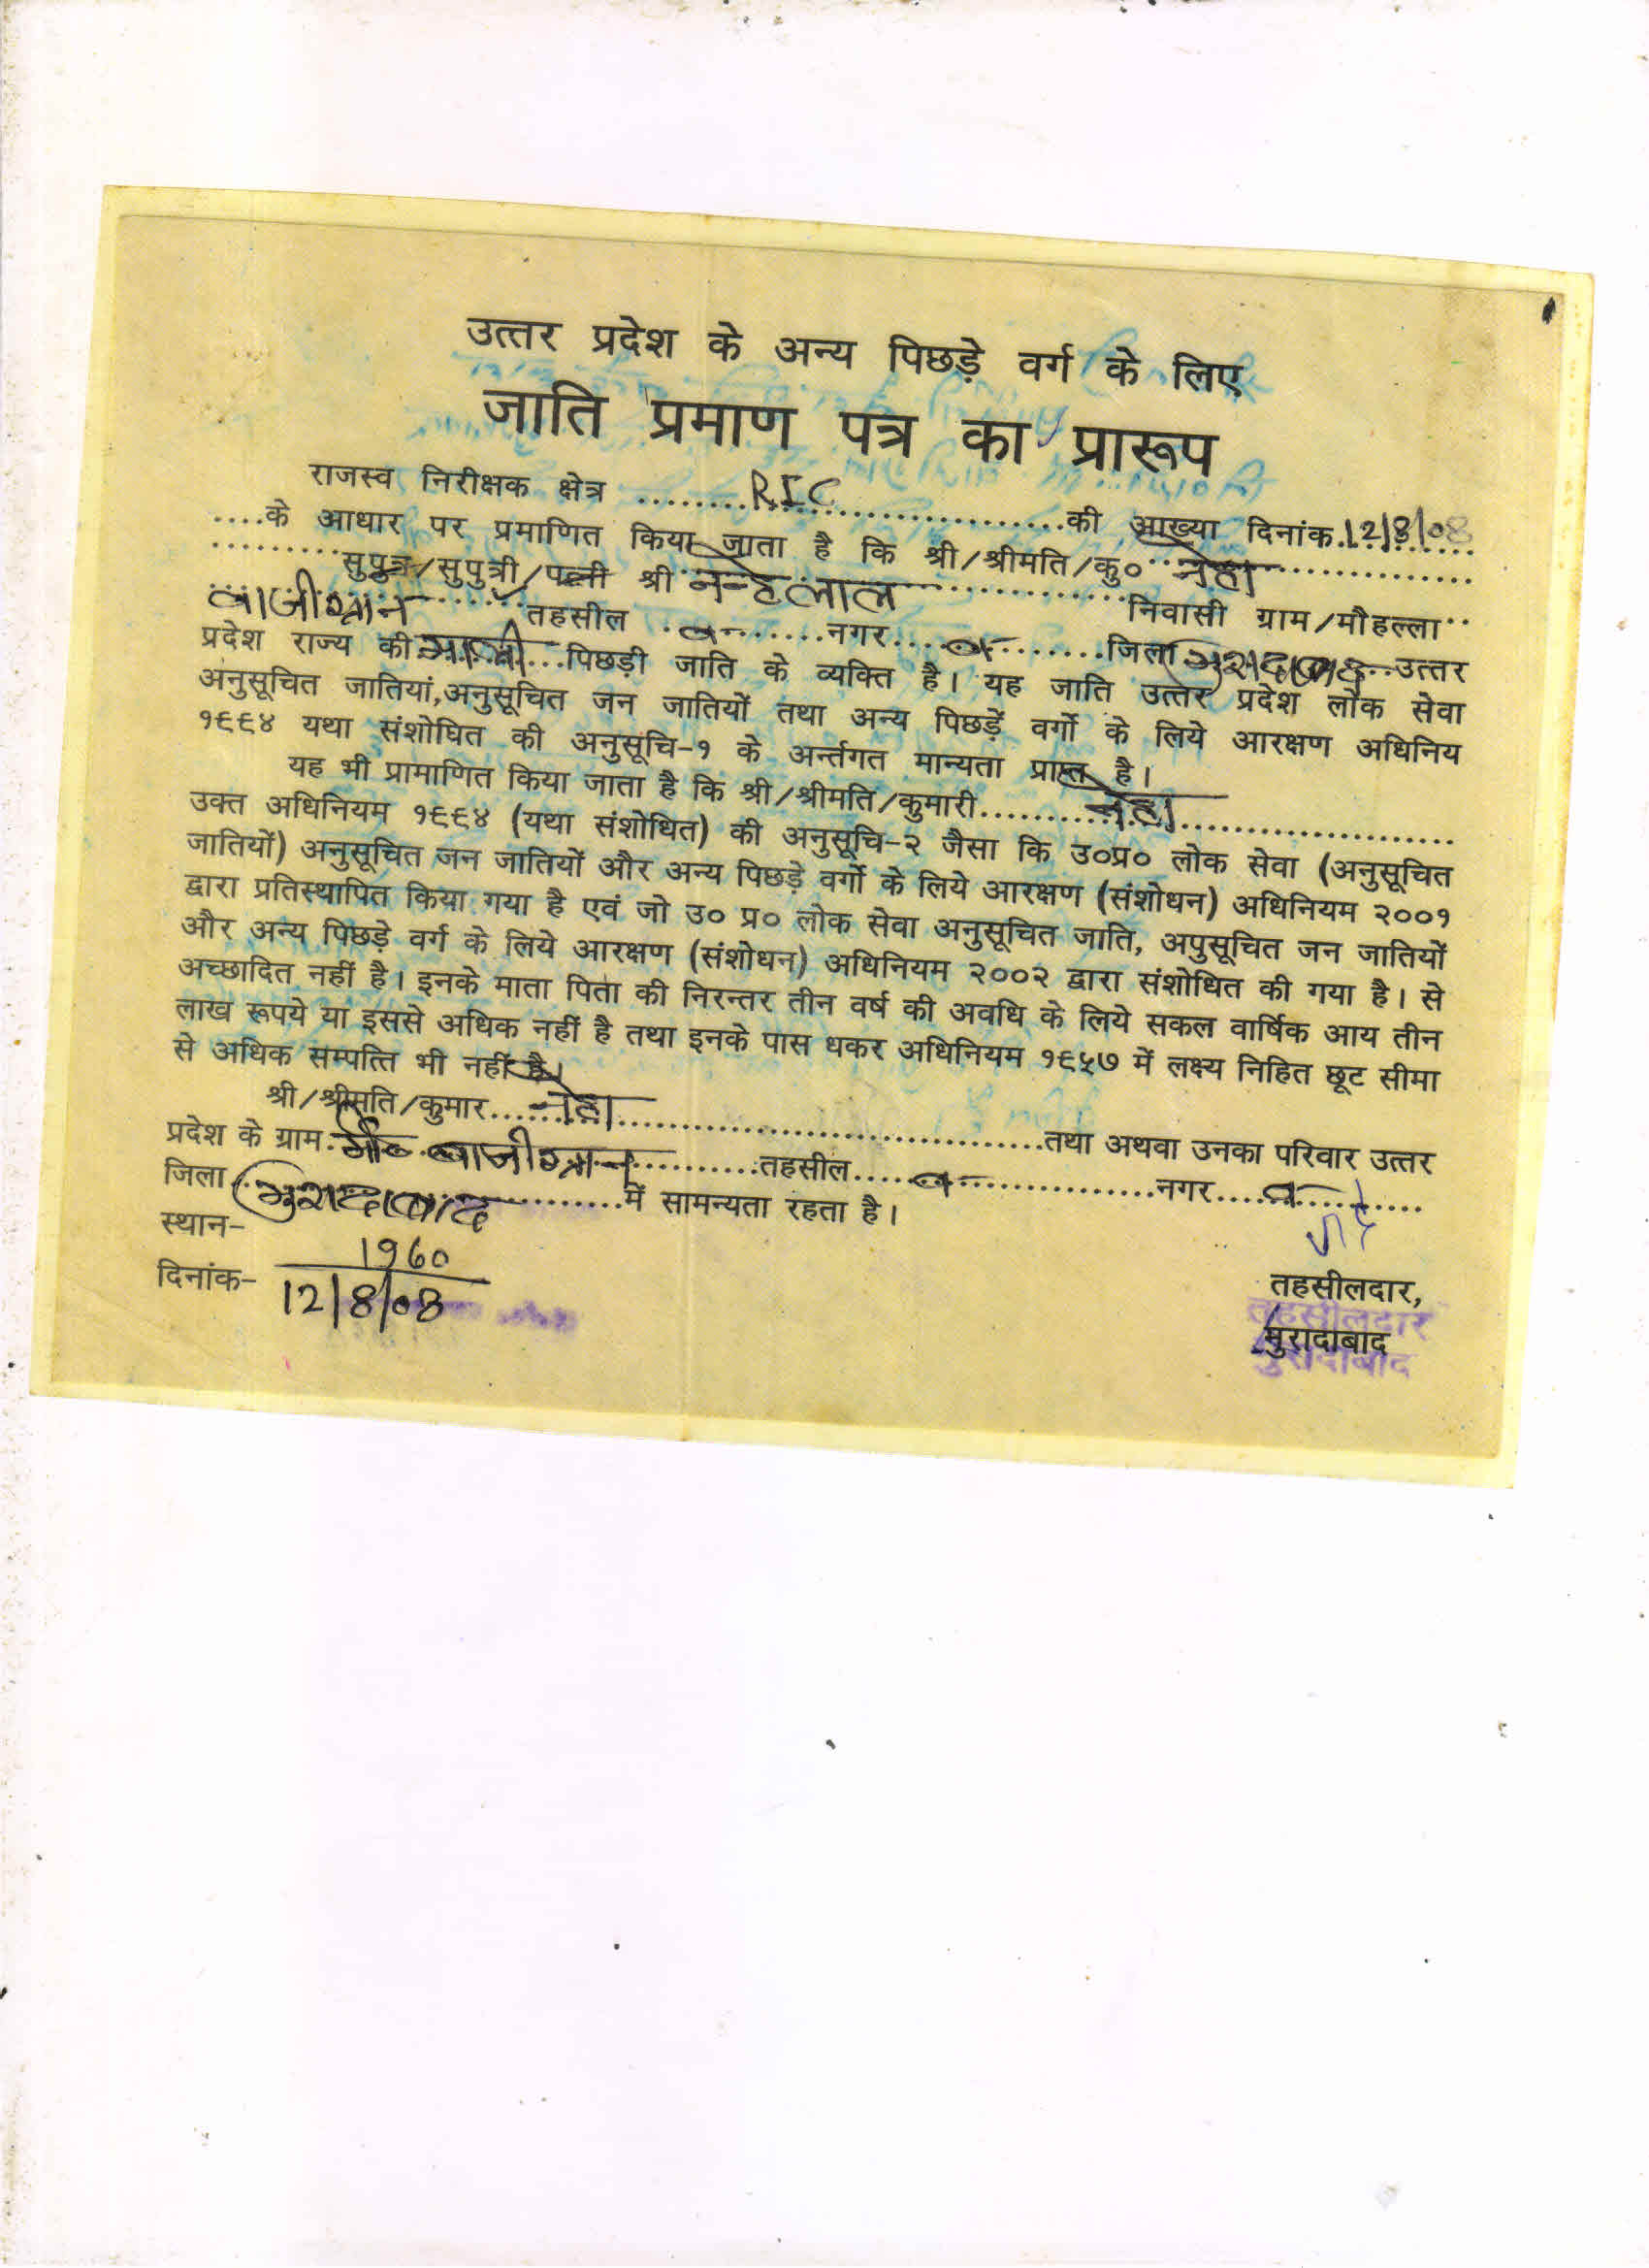 उत्तर प्रदेश के अन्य पिछड़े वर्ग के लिए
जाति प्रमाण पत्र का प्रारूप
राजस्व निरीक्षक क्षेत्र ........RIC....................की आख्या दिनांक.12/8/08
....के आधार पर प्रमाणित किया जाता है कि श्री/श्रीमति/कु० नेहा....................
..........सुपुत्र/सुपुत्री/पत्नी श्री नन्हेलाल....................निवासी ग्राम/मौहल्ला..
बाजीग्रान तहसील ..........नगर..............जिला मुरादाबाद..उत्तर
प्रदेश राज्य की.माली...पिछड़ी जाति के व्यक्ति है। यह जाति उत्तर प्रदेश लोक सेवा
अनुसूचित जातियां,अनुसूचित जन जातियों तथा अन्य पिछड़ें वर्गो के लिये आरक्षण अधिनिय
१९९४ यथा संशोघित की अनुसूचि-१ के अर्न्तगत मान्यता प्राप्त है।
यह भी प्रामाणित किया जाता है कि श्री/श्रीमति/कुमारी..........नेहा....................
उक्त अधिनियम १९९४ (यथा संशोधित) की अनुसूचि-२ जैसा कि उ०प्र० लोक सेवा (अनुसूचित
जातियों) अनुसूचित जन जातियों और अन्य पिछड़े वर्गो के लिये आरक्षण (संशोधन) अधिनियम २००१
द्वारा प्रतिस्थापित किया गया है एवं जो उ० प्र० लोक सेवा अनुसूचित जाति, अपुसूचित जन जातियों
और अन्य पिछड़े वर्ग के लिये आरक्षण (संशोधन) अधिनियम २००२ द्वारा संशोधित की गया है। से
अच्छादित नहीं है। इनके माता पिता की निरन्तर तीन वर्ष की अवधि के लिये सकल वार्षिक आय तीन
लाख रूपये या इससे अधिक नहीं है तथा इनके पास धकर अधिनियम १९५७ में लक्ष्य निहित छूट सीमा
से अधिक सम्पत्ति भी नहीं है।
श्री/श्रीमति/कुमार......नेहा..............................तथा अथवा उनका परिवार उत्तर
प्रदेश के ग्राम.मौ० बाजीग्रान..........तहसील....................नगर..............
जिला मुरादाबाद..........में सामन्यता रहता है।
स्थान-
1960
दिनांक- 12/8/08
तहसीलदार,
मुरादाबाद
तहसीलदार
मुरादाबाद